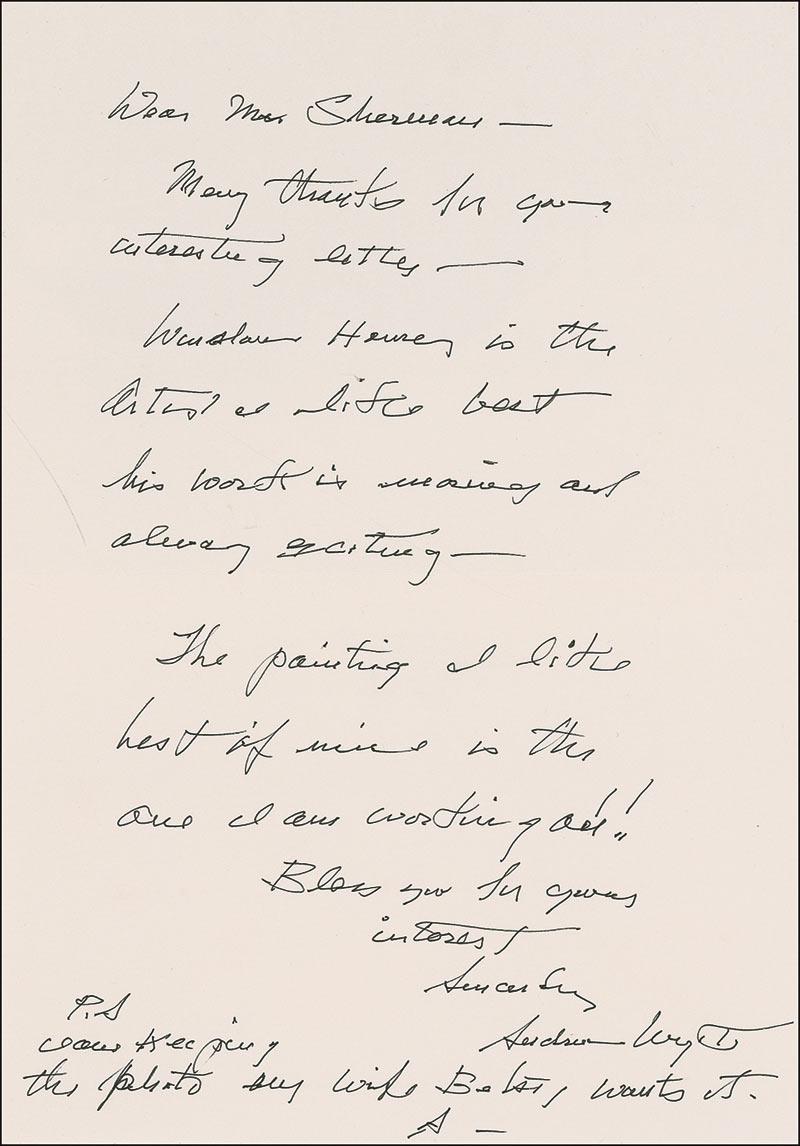 Dear Mr. Sherman —
Many thanks for your
interesting letter —
Winslow Homer is the
Artist I like best
his work is moving and
always exciting —
The painting I like
best of mine is the
one I am working on!!
Bless you for your
interest
Sincerely
Andrew Wyeth
P.S
I am keeping
the photo my wife Betsy wants it.
A —